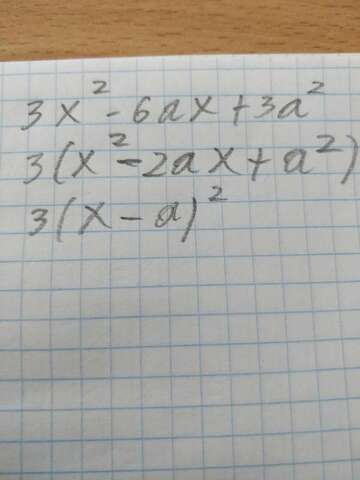 3x² - 6ax + 3a²
3(x² - 2ax + a²)
3(x - a)²